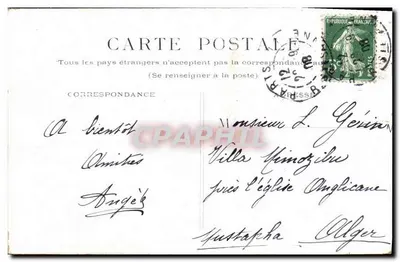 CARTE POSTALE
Tous les pays étrangers n'acceptent pas la correspondance au
(Se renseigner à la poste)
CORRESPONDANCE
A bientôt
Amitiés
Angèle
Monsieur L. Gérin
Villa
près l'église Anglicane
Mustapha Alger
PARIS
CPAPHIL